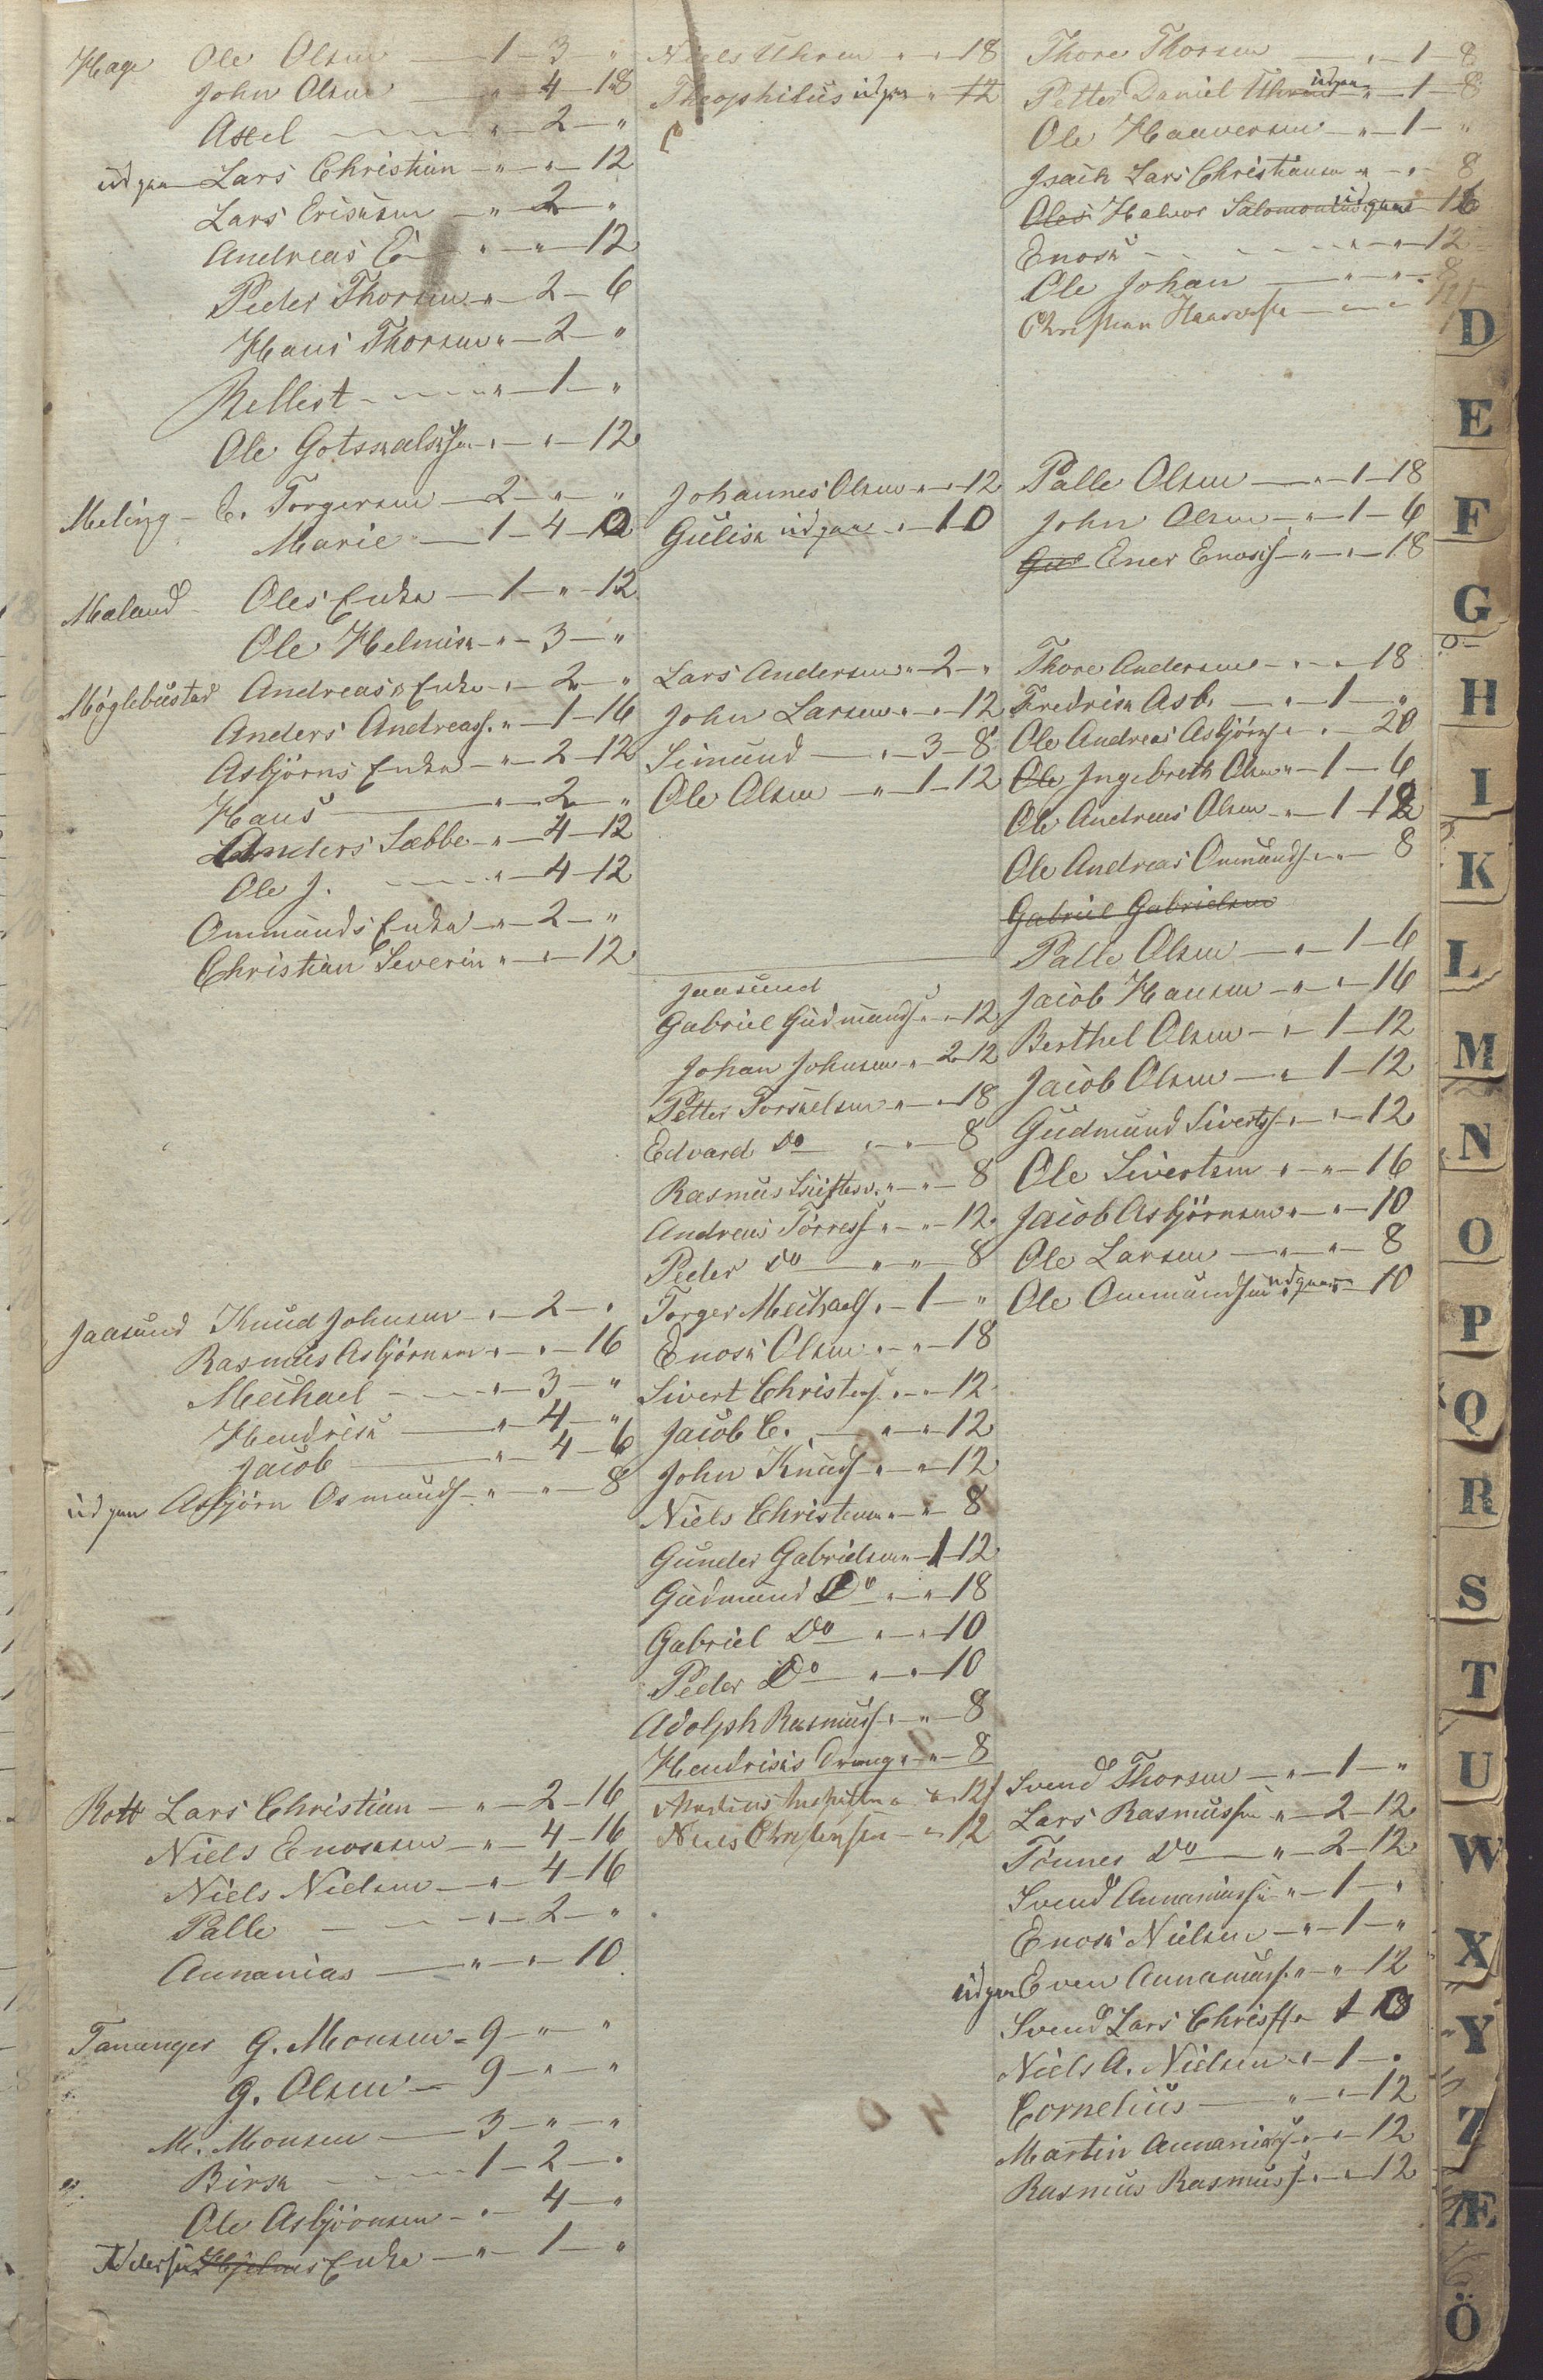 Hage Ole Olsen — 1 — 3 — "
John Olsen — " — 4 — 18
Axel — " — 2 — "
udgaar Lars Christian — " — " — 12
Lars Ericksen — " — 2 — "
Andreas E — " — " — 12
Peder Thorsen — " — 2 — 6
Hans Thorsen " — 2 — "
Rellest — " — 1 — "
Ole Gotskalks. " — " — 12
Meling — E. Torgersen — 2 — " — "
Marie — 1 — 4 —
Meland — Oles Enke — 1 — " — 12
Ole Helmik — " — 3 — "
Møglebustad Andreas's Enke — " — 2 — "
Anders Andreass. " — 1 — 16
Asbjörns Enke — " — 2 — 12
Hans — " — 2 — "
Anders Sæbbe — " — 4 — 12
Ole J. — " — 4 — 12
Ommunds Enke — " — 2 — "
Christian Severin " — " — 12
Jaasund Knud Johnsen — " — 2 — "
Rasmus Asbjörnsen " — " — 16
Meihael — " — 3 — "
Hendrik — " — 4 — "
Jacob — " — 4 — 6
udgaar Asbjörn Osmunds — " — " — 8
Rott Lars Christian — " — 2 — 16
Niels Enoksen — " — 4 — 16
Niels Nielsen — " — 4 — 16
Palle — " — 2 — "
Annanias — " — " — 10
Tananger G. Monsen — 9 — " — "
G. Olsen — 9 — " — "
M. Monsen — 3 — " — "
Birk — 1 — 2 — "
Ole Asbjörnsen — " — 4 — "
Enke — " — 1 — "
Niels Uhren " " 18
Theophilus udgaar " 12
Johannes Olsen " — " — 12
Gulik udgaar " — 10
Lars Andersen " — 2 — "
John Larsen " — " — 12
Simund — " — 3 — 8
Ole Olsen — " — 1 — 12
Jaasund
Gabriel Gudmunds. " " 12
Johan Johnsen " 2 — 12
Petter Torkelsen " — " — 18
Edvard Do " — " — 8
Rasmus " — " — 8
Andreas Torress. " — " — 12
Peder Do — " — " — 8
Torger Meihaels. " — 1 — "
Enok Olsen " — " — 18
Sivert Christens. " — " — 12
Jacob C. " — " — 12
John Knuds. " — " — 12
Niels Christensen " — " — 8
Gunder Gabrielsen " — 1 — 12
Gudmund Do " — " — 18
Gabriel Do — " — " — 10
Peder Do — " — " — 10
Adolph Rasmuss. " — " — 8
Hendriks Dreng " — " — 8
Niels Christensen — " 12
Thore Thorsen — " — 1 — 8
Petter Daniel Uhren udgaar " — 1 — 8
Ole Haaversen — " — 1 — "
Isaich Lars Christiansen " — " — 8
Oles Halvor Salomonsen udgaar 16
Enok — " — " — 12
Ole Johan — " — " — 8
Palle Olsen — " — 1 — 18
John Olsen — " — 1 — 6
Gul Ener Enoks. — " — " — 18
Thore Andersen — " — " — 18
Fredrik Asb. — " — 1 — "
Ole Andreas Asbjörns. " — " — 20
Ole Ingebreth Olsen " — 1 — 6
Ole Andreas Olsen — " — 1 —
Ole Andreas Ommunds. " — " — 8
Gabriel Gabrielsen
Palle Olsen — " — 1 — 6
Jacob Hansen — " — " — 16
Berthel Olsen — " — 1 — 12
Jacob Olsen — " — 1 — 12
Gudmund Siverts. " — " — 12
Ole Sivertsen " — " — 16
Jacob Asbjörnsen " — " — 10
Ole Larsen — " — " — 8
Ole Ommundsen udgaar — 10
Svend Thorsen — " — 1 — "
Lars Rasmussen " — 2 — 12
Tönnes Do — " — 2 — 12
Svend Annaniassen " — 1 — "
Enok Nielsen — " — 1 — "
udgaar Even Annaniass. " — " — 12
Svend Lars Christ.
Niels A. Nielsen — " — 1 — "
Cornelius — " — " — 12
Martin Annanias. " — " — 12
Rasmus Rasmuss. " — " — 12
D
E
F
G
H
I
K
L
M
N
O
P
Q
R
S
T
U
W
X
Y
Z
Æ
Ö